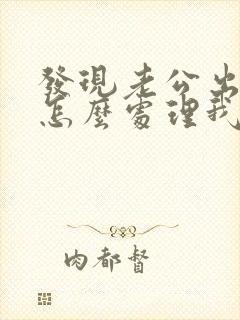 發現老公出
怎麼處理我
肉都督